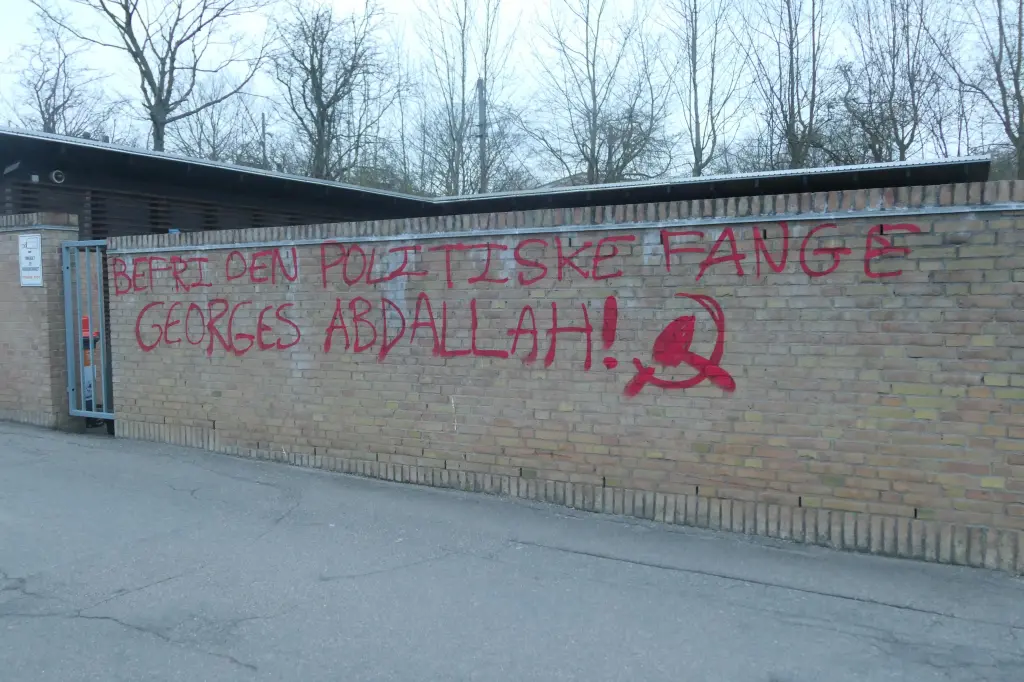 BEFRI DEN POLITISKE FANGE
GEORGES ABDALLAH!